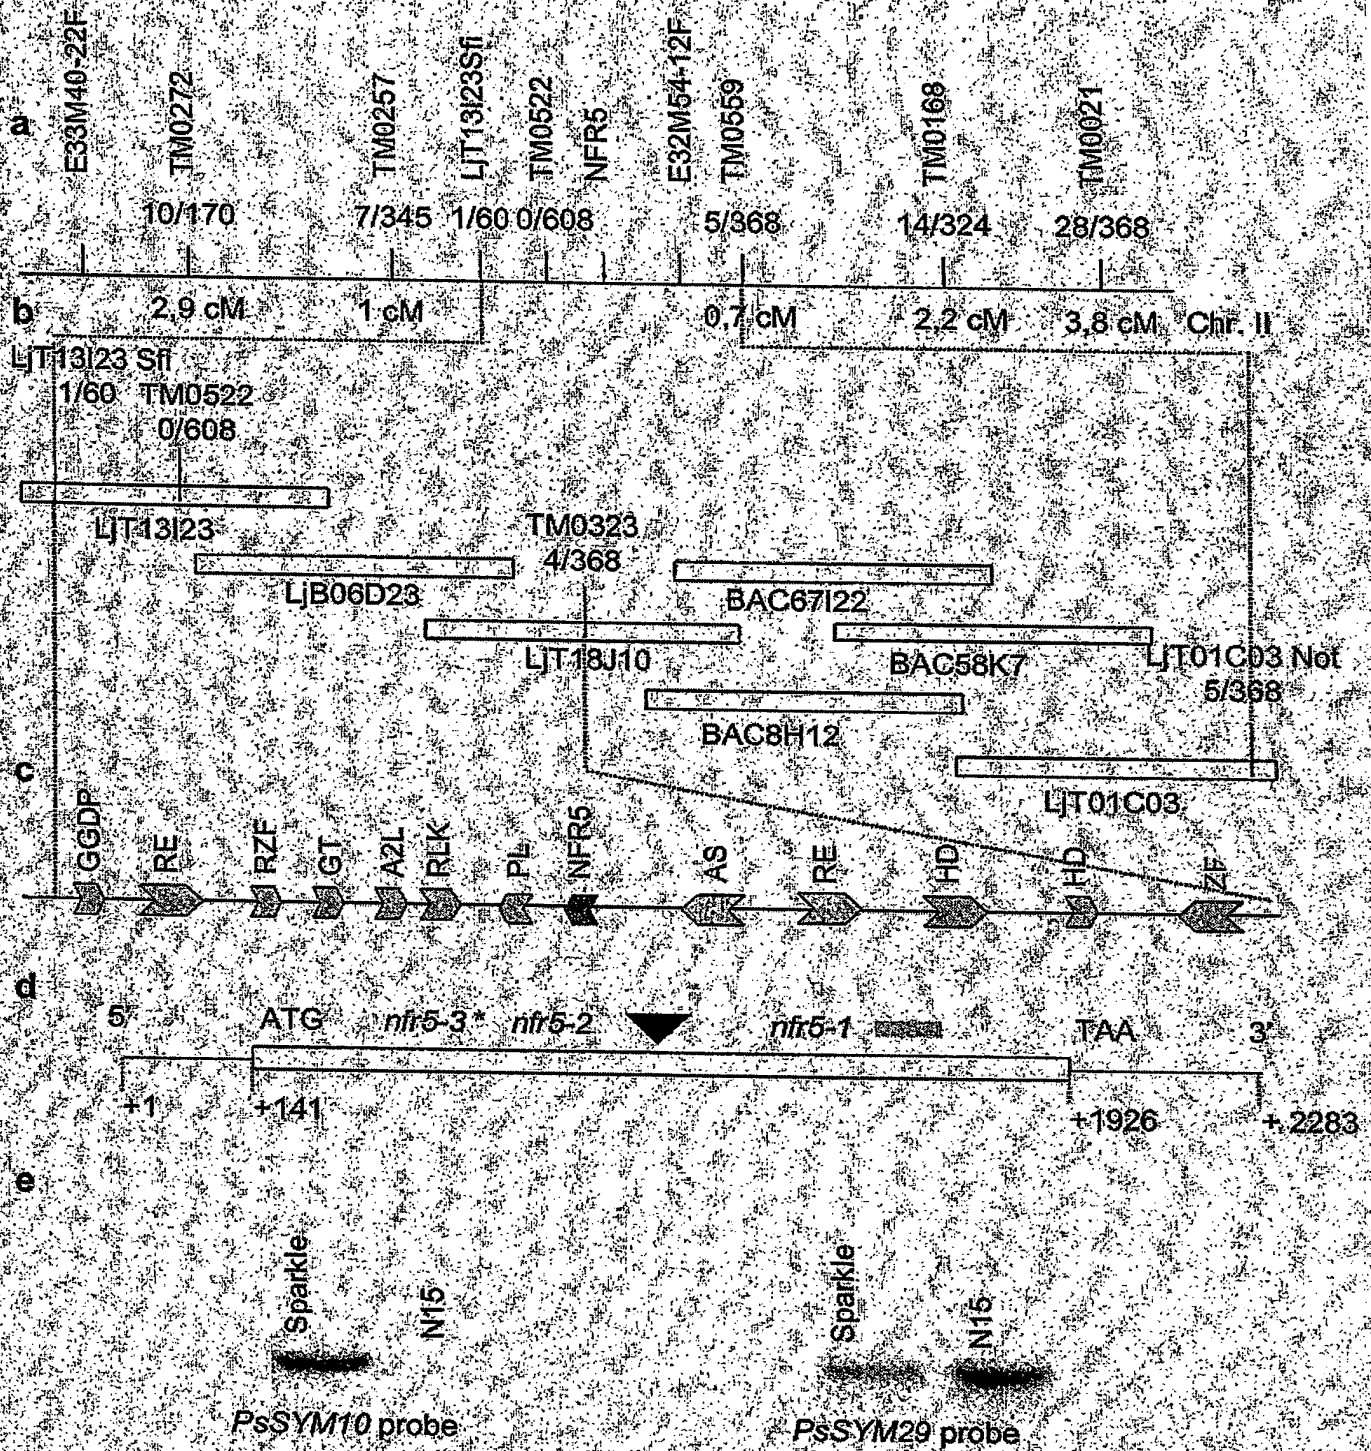 a
E33M40-22F
TM0272
TM0257
LjT13I23Sfi
TM0522
NFR5
E32M54-12F
TM0559
TM0168
TM0021
10/170 7/345 1/60 0/608 5/368 14/324 28/368
b
2,9 cM 1 cM 0,7 cM 2,2 cM 3,8 cM Chr. II
LjT13I23 Sfi
1/60 TM0522
0/608
LjT13I23
TM0323
4/368
LjB06D23
BAC67I22
LjT18J10
BAC58K7
LjT01C03 Not
5/368
BAC8H12
LjT01C03
c
GGDP
RE
RZF
GT
A2L
RLK
PL
NFR5
AS
RE
HD
HD
ZF
d
5' ATG nfr5-3 * nfr5-2 nfr5-1 TAA 3'
+1 +141 +1926 +2283
e
Sparkle
N15
Sparkle
N15
PsSYM10 probe
PsSYM29 probe